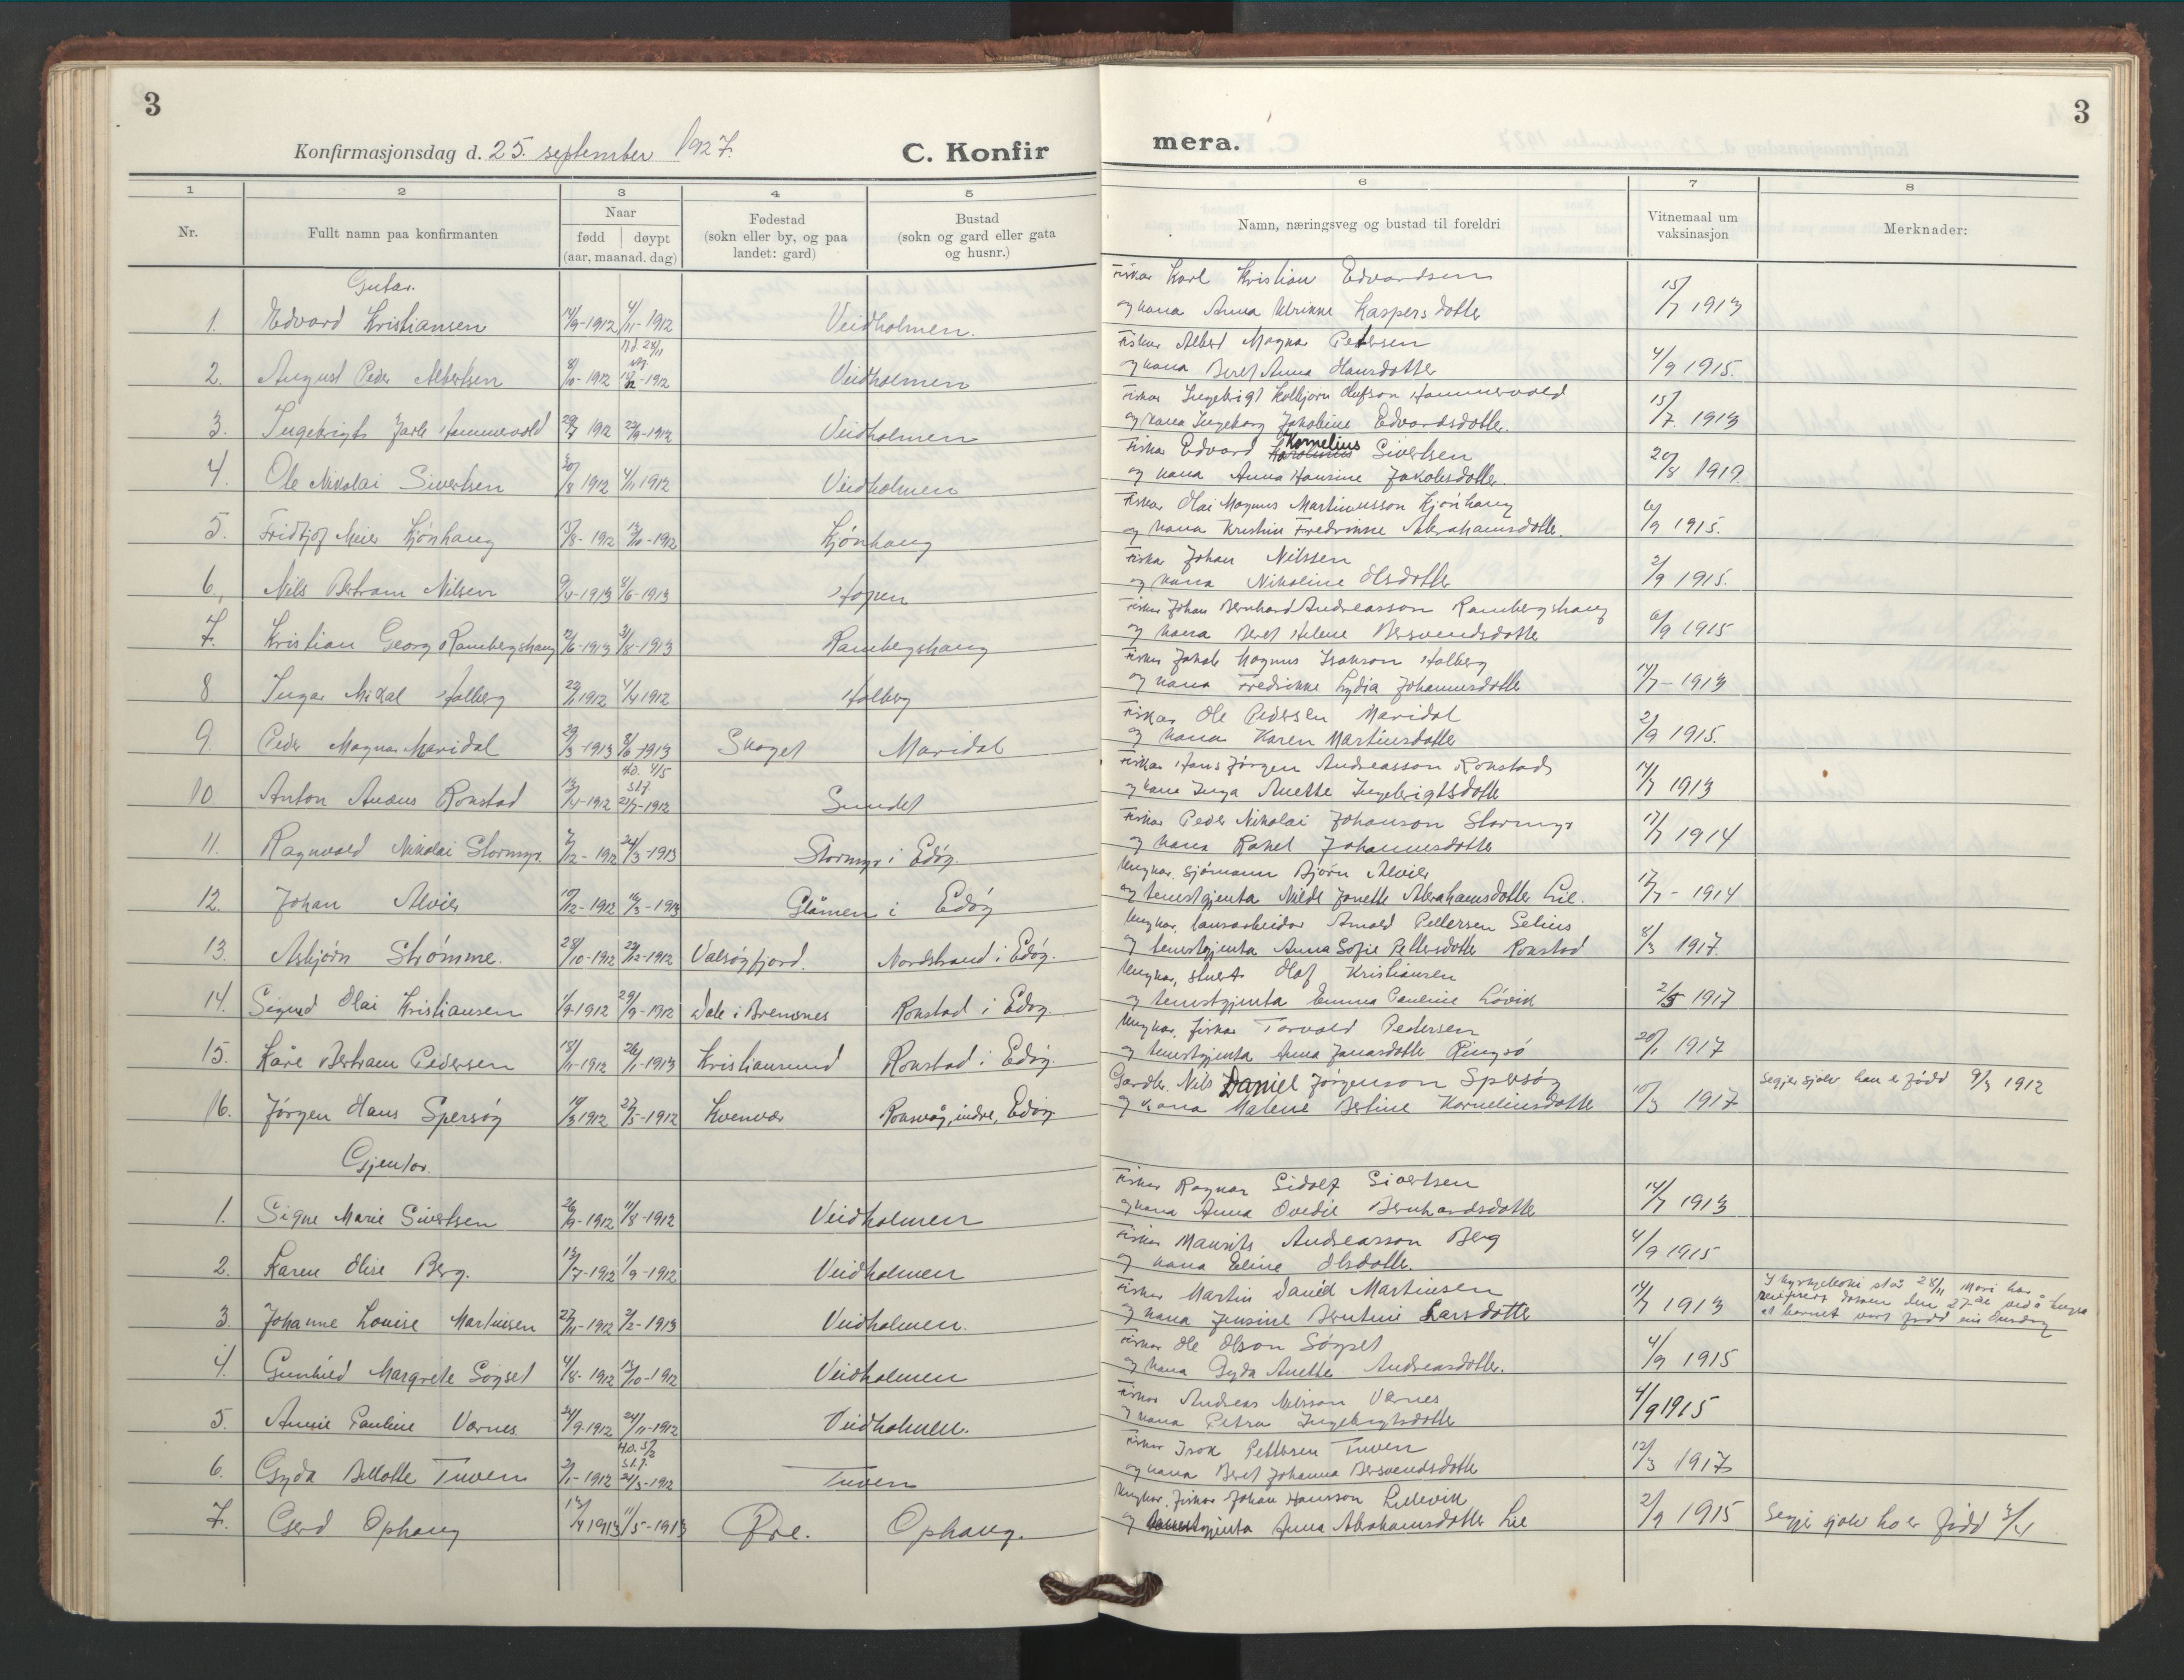 3
Konfirmasjonsdag d. 25. september 1927.
C. Konfir
1 2 3 4 5
Nr.
Fullt namn paa konfirmanten
Naar
fødd | døypt
(aar, maanad. dag)
Fødestad
(sokn eller by, og paa
landet: gard)
Bustad
(sokn og gard eller gata
og husnr.)
Gutar.
1. Edvard Kristiansen 14/9-1912 4/11-1912 Veidholmen.
2. August Peder Albertsen 8/10-1912 Veidholmen
3. Ingebrigt Jarle Hammervold 29/7 1912 22/9-1912 Veidholmen
4. Ole Nikolai Sivertsen 30/8 1912 4/11 1912 Veidholmen
5. Fridtjof Meier Kjönhaug 15/8-1912 13/10-1912 Kjönhaug
6. Nils Bertram Nilsen 9/4-1913 8/6-1913 Hopen
7. Kristian Georg Rambergshaug 12/6-1913 31/8-1913 Rambergshaug
8 Ingar Mikal Halberg 1912 4/4 1912 Halberg
9. Peder Magnar Maridal 29/3-1913 8/6-1913 Skaget Maridal
10. Anton Andreas Rokstad 13/4-1912 21/7-1912 Sundet
11. Ragnvald Nikolai Stormyr. 7/12-1912 24/3-1913 Stormyr i Edöy.
12. Johan Alvier 10/12-1912 16/3-1913 Glåmen i Edöy
13. Asbjörn Strömme. 28/10-1912 22/12-1912 Valsöyfjord. Nordstrand i Edöy.
14. Sigurd Olai Kristiansen 1/9-1912 29/9-1912 Dale i Bremsnes Rokstad i Edöy.
15. Kåre Bertram Pedersen 18/11-1912 26/1-1913 Kristiansund Rokstad i Edöy.
16. Jörgen Hans Spersöy 19/3 1912 27/5-1912 Kvenvær Roksvåg, indre, Edöy
Gjentor.
1. Signe Marie Sivertsen 1912 11/8-1912 Veidholmen
2. Karen Olise Berg. 13/7-1912 1/9-1912 Veidholmen
3. Johanne Louise Martinsen 27/11-1912 2/2-1913 Veidholmen.
4. Gunhild Margrete Söyset 4/8-1912 13/10-1912 Veidholmen
5. Annie Pauline Værnes 24/9-1912 24/11-1912 Veidholmen.
6. Gyda Tuven 2/1-1912 24/3-1912 Tuven
7. Gerd Ophaug 1913 11/5-1913 Ophaug.
mera.
3
6 7 8
Namn, næringsveg og bustad til foreldri
Vitnemaal um
vaksinasjon
Merknader:
Fiskar Karl Kristian Edvardsen
og kona Anna Ulrikke Kaspersdotter 15/7 1913
Fiskar Albert Magnar Petersen
og kona Beret Anna Hansdotter 4/9 1915.
Fiskar Ingebrigt Kolbjörn Olufson Hammervold
og kona Ingeborg Jakobine Edvardsdotter. 15/7 1913
Fiskar Edvard Kornelius Sivertsen
og kona Anna Hansine Jakobsdotter. 20/8 1919
Fiskar Olai Magnus Martinusson Kjönhaug
og kona Kristine Fredrikke Abrahamsdotter. 6/9 1915.
Fiskar Johan Nilssen
og kona Nikoline Olsdotter 2/9 1915.
Fiskar Johan Bernhard Andreasson Rambergshaug
og kona Beret Helene Bersvendsdotter 6/9 1915
Fiskar Jakob Magnus Isakson Halberg
og kona Fredrikke Lydia Johannesdotter 14/7-1913
Fiskar Ole Pedersen Maridal
og kona Karen Martinsdotter 2/9 1915.
Fiskar Hans Jörgen Andreasson Rokstad
og kone Inga Anette Ingebrigtsdotter 14/7 1913
Fiskar Peder Nikolai Johanson Stormyr
og kona Rakel Johannesdotter 17/7 1914
Ungkar, sjömann Björn Alvier
og tenestgjenta Milde Janette Abrahamsdotter Lie. 17/7-1914
Ungkar, Arnold Pettersen Selius
og tenestgjenta Anna Sofie Pettersdotter Rokstad 8/3 1917.
Ungkar, stuert Olaf Kristiansen
og tenestgjenta Emma Pauline Lövik 2/5 1917
Ungkar, fiskar Torvald Pedersen
og tenestgjenta Anna Jonasdotter Ringsö 20/1 1917
Gardbr. Nils Daniel Jörgenson Spersöy
og kona Malene Bertine Korneliusdotter 10/3 1917 Segjer sjolv han er född 9/3 1912
Fiskar Ragnar Sidolf Sivertsen
og kona Anna Ovedie Bernhardsdotter 14/7 1913
Fiskar Maurits Andreasson Berg
og kona Eline Olsdotter. 4/9 1915
Fiskar Martin Daniel Martinsen
og kona Jensine Bentine Larsdotter 14/7 1913
I kyrkjeboki står 28/11 Mori har
den 27-de ved å hugsa
at barnet vart född ein Onsdag
Fiskar Ole Olson Söyset
og kona Gyda Anette Andreasdotter. 4/9 1915
Fiskar Andreas Nilsson Værnes
og kona Petra Ingebrigtsdotter 4/9 1915
Fiskar Isak Pettersen Tuven
og kona Beret Johanna Bersvendsdotter 12/3 1917
Ungkar, fiskar Johan Hansson Lillevik
og tenestgjenta Anna Abrahamsdotter Lie 2/9 1915 Segjer sjolv ho er född 3/4